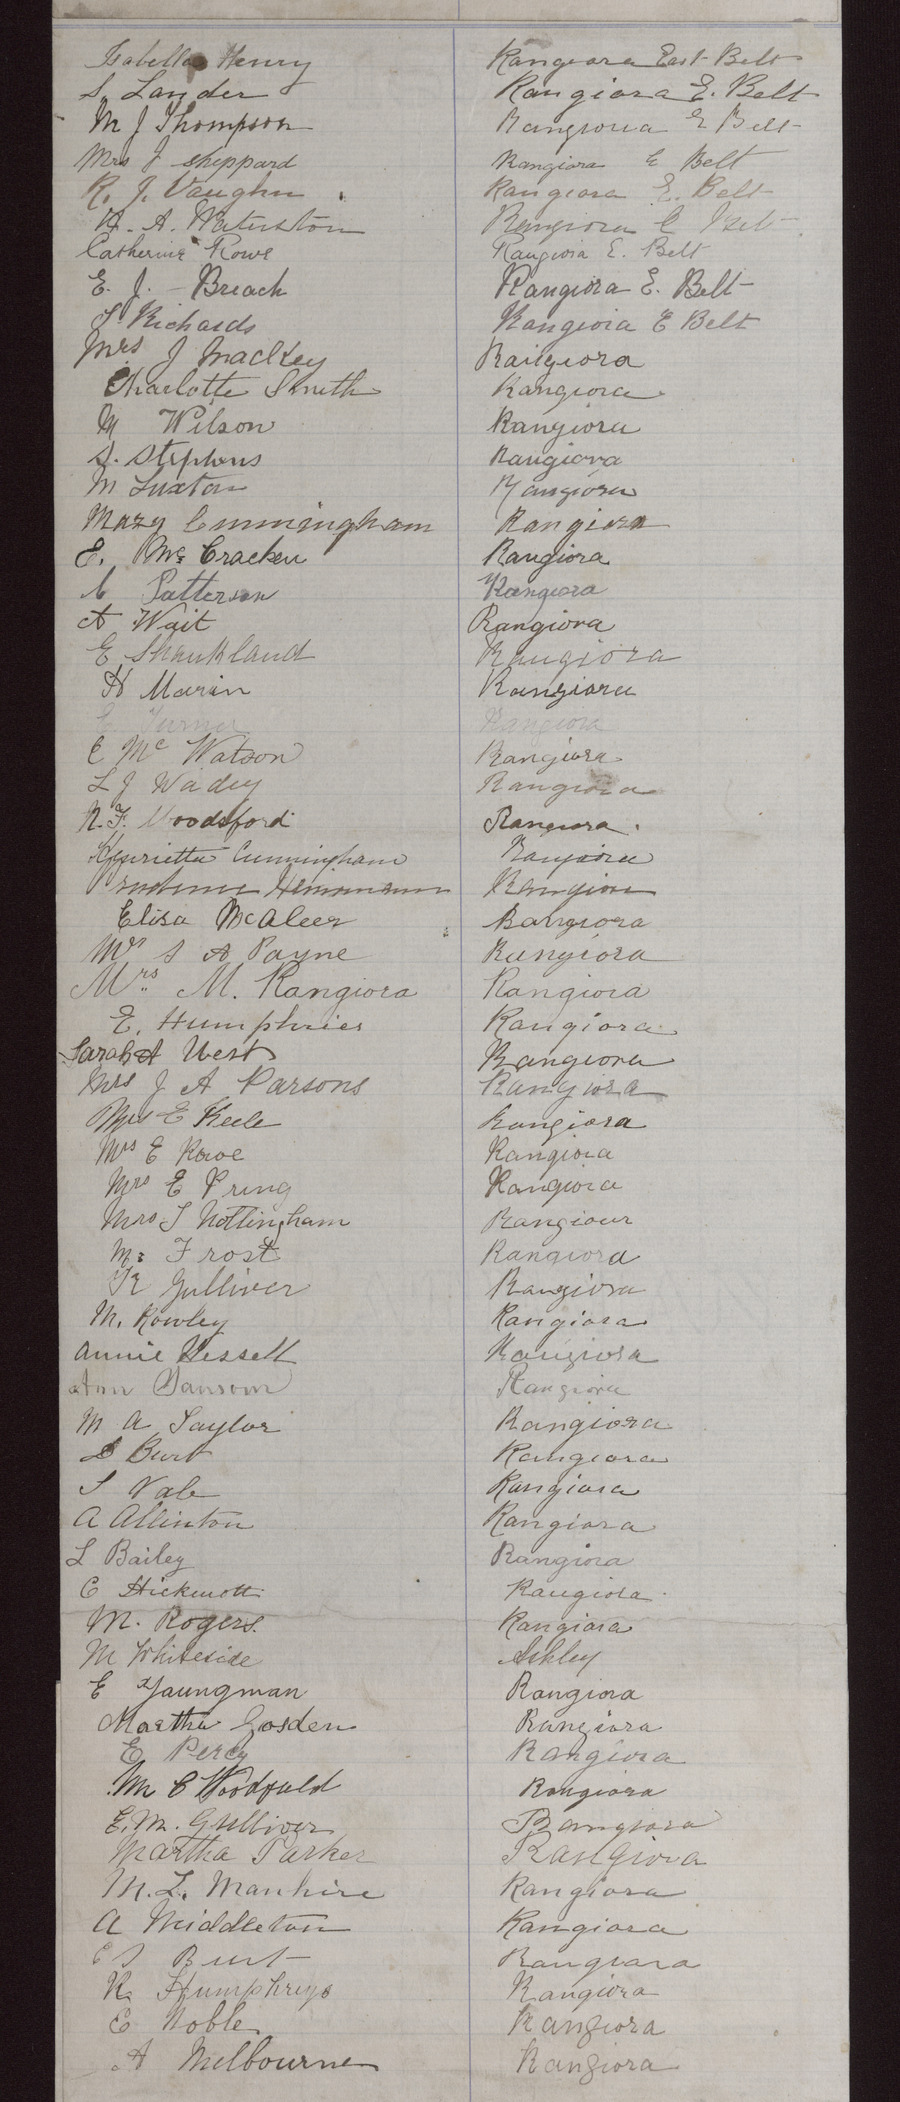 Isabella Henry Rangiora East Belt
S. Lander Rangiora E. Belt
M J Thompson Rangiora E Belt
Mrs J Sheppard Rangiora E Belt
R. J. Vaughn Rangiora E. Belt
H. A. Waterston Rangiora E Belt
Catherine Rowe Rangiora E. Belt
E. J. Breach Rangiora E. Belt
S Richards Rangiora E Belt
Mrs J Mackey Rangiora
Charlotte Smith Rangiora
M Wilson Rangiora
S. Stephens Rangiora
M Luxton Rangiora
Mary Cunningham Rangiora
E. McCracken Rangiora
C Patterson Rangiora
A Wait Rangiora
E Shankland Rangiora
H Marin Rangiora
Turner Rangiora
E Mc Watson Rangiora
L J Wadey Rangiora
N. F. Woodsford Rangiora.
Henrietta Cunningham Rangiora
Prudence Rangiora
Eliza McAleer Rangiora
Mrs S A Payne Rangiora
Mrs. M. Rangiora Rangiora
E. Humphries Rangiora
Sarah A West Rangiora
Mrs J A Parsons Rangiora
Mrs E Keele Rangiora
Mrs E Rowe Rangiora
Mrs E Pring Rangiora
Mrs S Nottingham Rangiora
M. Frost Rangiora
K Gulliver Rangiora
M. Rowley Rangiora
Annie Hessell Rangiora
Ann Sansom Rangiora
M A Taylor Rangiora
S Burt Rangiora
S Vale Rangiora
A Allinton Rangiora
L Bailey Rangiora
C Hickmott Rangiora
M. Rogers. Rangiora
M Whiteside Ashley
E Youngman Rangiora
Martha Gosden Rangiora
E Percy Rangiora
M C Woodfuld Rangiora
E. M. Gulliver Rangiora
Martha Parker Rangiora
M. L. Manhire Rangiora
A Middleton Rangiora
E S Burt Rangiora
K Humphreys Rangiora
E Noble Rangiora
A Melbourne Rangiora